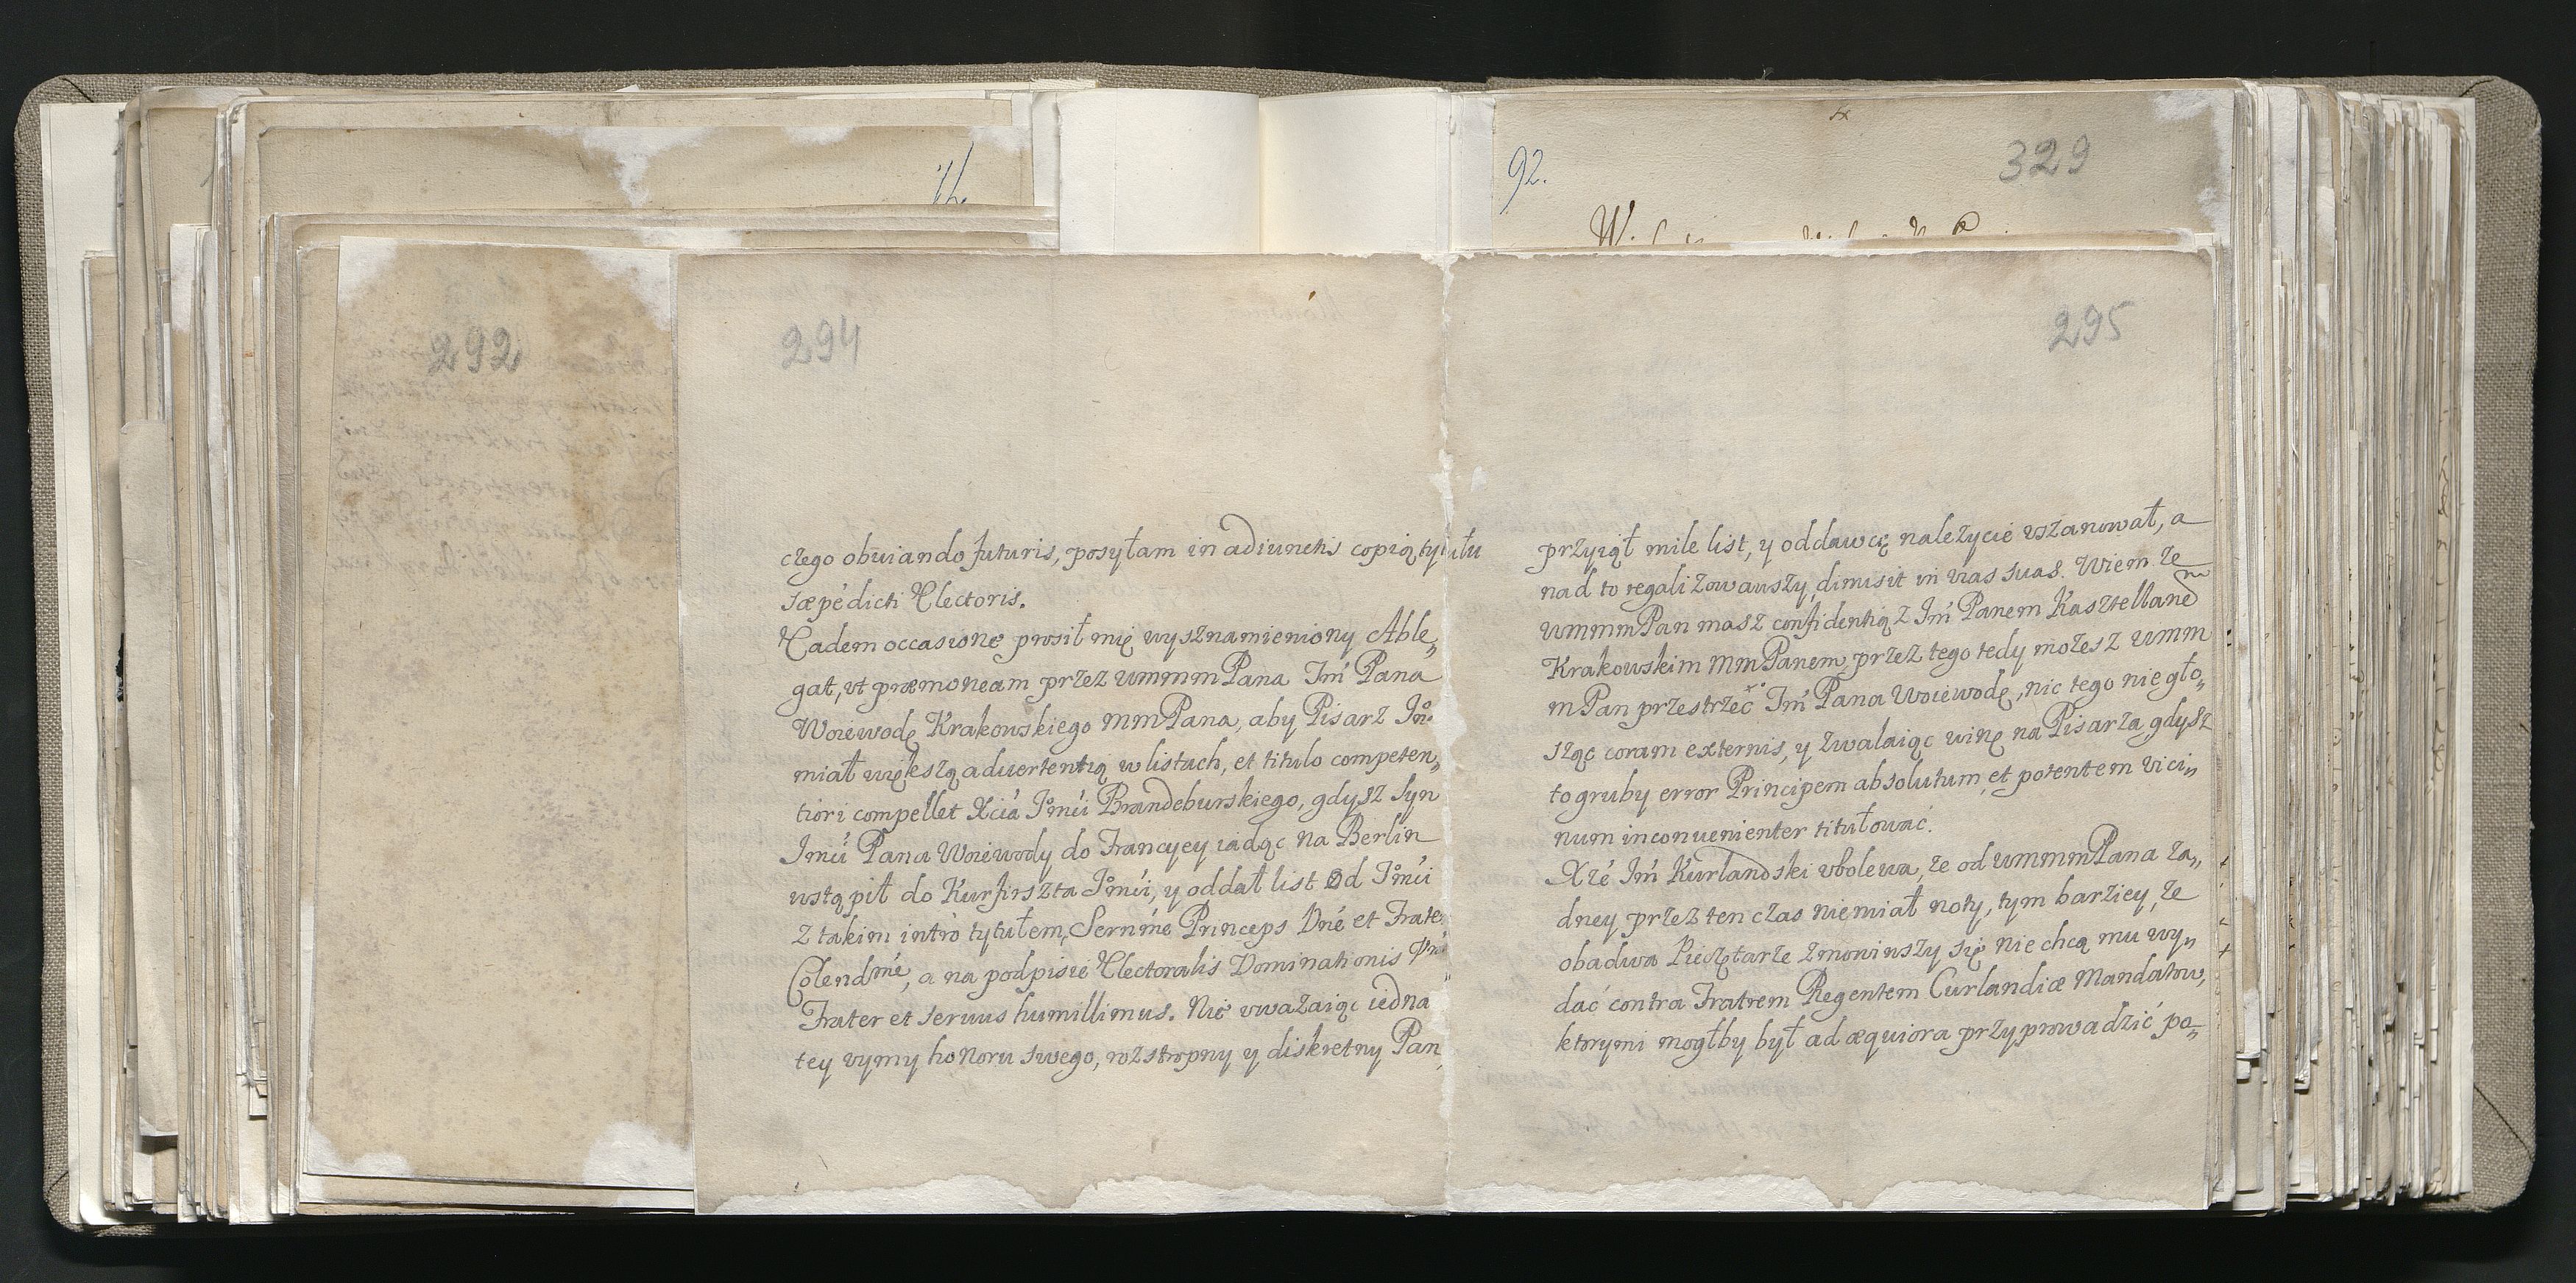 92.
329
292
294
czego obuiando futuris, posyłam in adiunctis copią tytułu
sæpedicti Electoris.
Eadem occasione prosił mię wysznamieniony Able„
gat, vt præmoneam przez ummmPana Im Pana
Woiewodę Krakowskiego mmPana, aby Pisarz Im
miał większą aduertentią w listach, et titulo competen„
tiori compellet Xcia Jmci Brandeburskiego, gdysz Syn
Jmci Pana Woiewody do Francyey iadąc na Berlin
wstąpił do Kurfirszta Jmci, y oddał list od Jmci
z takim intro tytułem, Sernme Princeps Dne et Frate
Colendme, a na podpisie Electoralis Dominationis
Frater et seruus humillimus. Nie vważaiąc iedna
tey vymy honoru swego, rozstropny y diskretny Pan
295
przyiął mile list, y oddawcę należycie vszanował, a
nad to regalizowauszy, dimisit in vias suas. Wiem że
ummmPan masz confidentią z Im Panem Kasztellanem
Krakowskim mmPanem, przez tego tedy możesz umm
mPan przestrzec Im Pana Woiewodę, nic tego nie gło„
sząc coram externis, y zwalaiąc winę na Pisarza, gdysz
to gruby error Principem absolutum, et potentem vici„
num inconuenienter titułować.
Xże Im Kurlandski vbolewa, że od ummmPana ża„
dney przez ten czas niemiał noty, tym barziey, że
obadwa Pieczętarze zmowiwszy się nie chcą mu wy„
dać contra Fratrem Regentem Curlandiæ Mandatow,
ktorymi mogłby był ad æquiora przyprowadzić po„